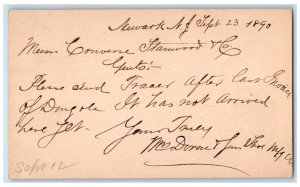 Newark NJ Sept 23 1890
Messrs Converse Stanwood & Co
Gents:-
Please send Tracer after Last Invoice
of Dongola It has not arrived
here Yet. Yours Truly
Shoe Mfg Co
Sept 12